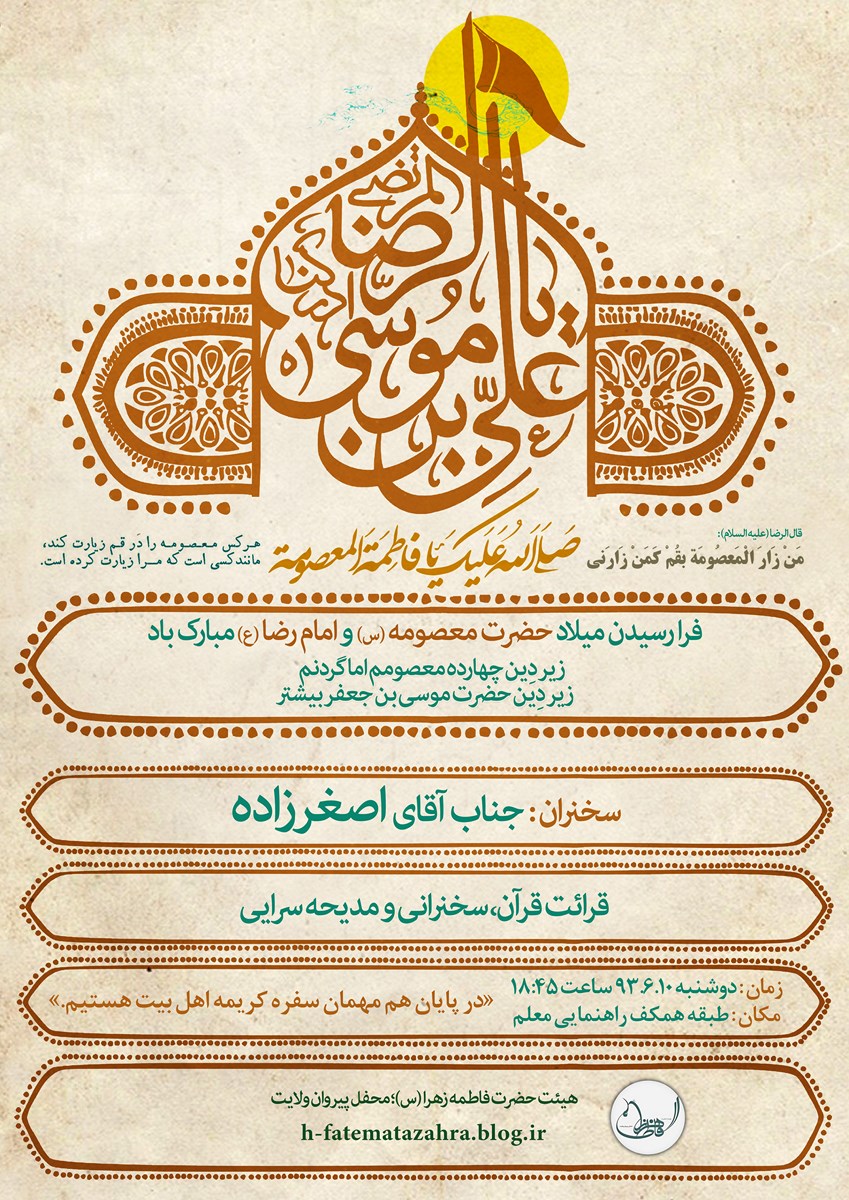 یا علی بن موسی الرضا المرتضی ادرکنا
قال‌الرضا (علیه‌السلام):
مَنْ زَارَ الْمَعصُومَة بِقُمْ کَمَنْ زارَنی
صَلَی اللهُ عَلَیکِ یَا فاطِمَةَ المَعصومة
هرکس معصومه را در قم زیارت کند،
مانند کسی است که مرا زیارت کرده است.
فرا رسیدن میلاد حضرت معصومه (س) و امام رضا (ع) مبارک باد
زیر دِین چهارده معصومم اما گردنم
زیر دِین حضرت موسی بن جعفر بیشتر
سخنران: جناب آقای اصغرزاده
قرائت قرآن، سخنرانی و مدیحه سرایی
زمان: دوشنبه ۹۳.۶.۱۰ ساعت ۱۸:۴۵
مکان: طبقه همکف راهنمایی معلم
«در پایان هم مهمان سفره کریمه اهل بیت هستیم.»
هیئت حضرت فاطمه زهرا (س)؛ محفل پیروان ولایت
h-fatematazahra.blog.ir